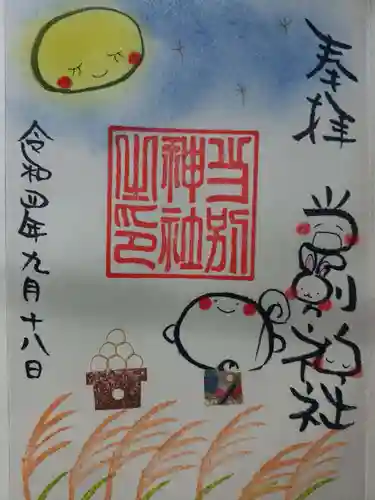 奉拝
当別神社
当別
神社
之印
令和四年九月十八日